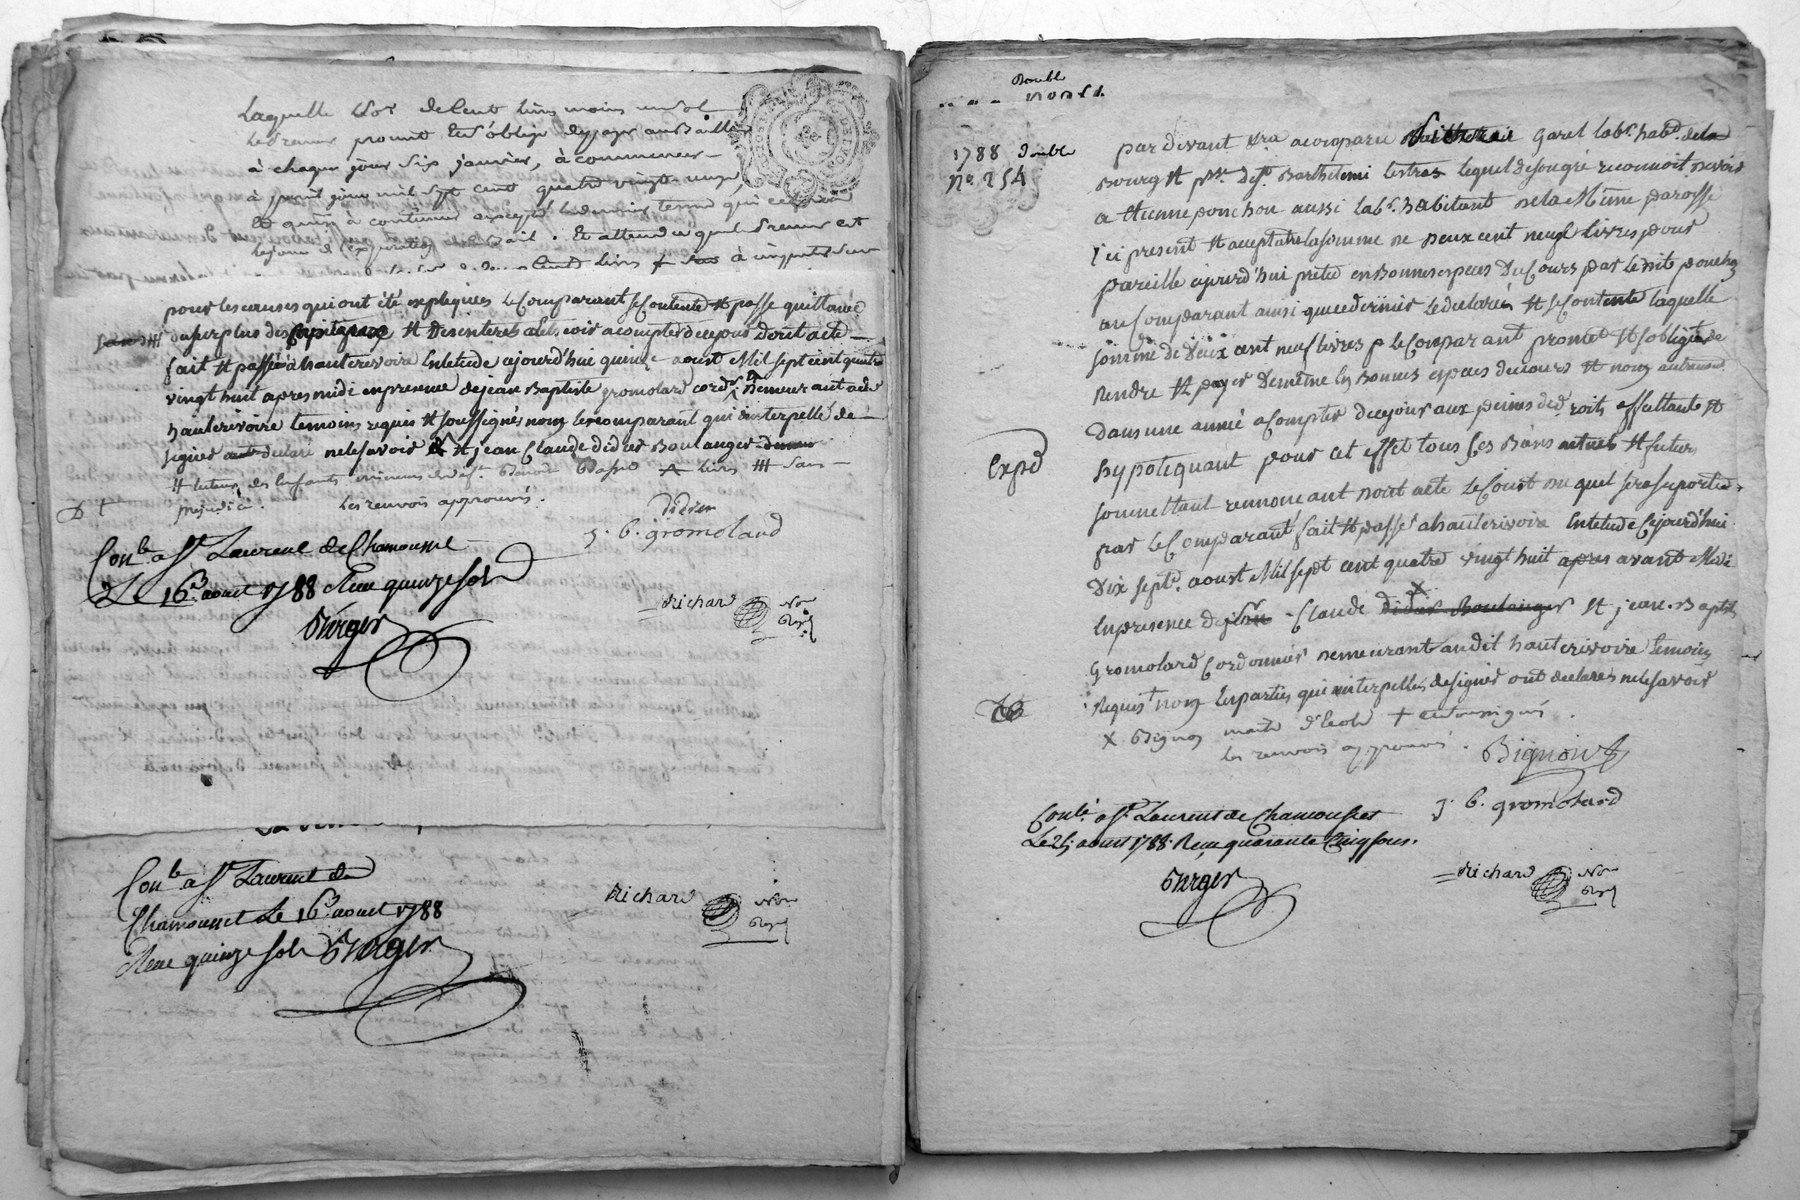 Laquelle de Cent livres moins un sol
Le preneur promet et s'oblige de payer au Bailleur
à chaque jour six janvier, à commencer
à pareil jour mil sept cent quatre vingt
Et ainsi à continuer excepté le dernier terme qui
Bail. Et attendu que le Preneur est
Cent livres à
pour les causes qui ont été expliquées le Comparant se Contente et passe quittance
du surplus des Capitaux et des interets a compter de ce jour dont acte
fait et passé à hauterivoire en letude cejourd'hui quinze aoust Mil sept cent quatre
vingt huit apres midi en presence de jean Baptiste gromolard cord.r Demeurant aud.
hauterivoire temoins requis et soussignés non le comparant qui interpellé de
signer a declaré ne le savoir et jean Claude Didier Boulanger
et tuteur des Enfants mineurs
prejudice. les renvois approuvés.
Didier
j. b. gromolard
Con.lé a S.t Laurent de Chamousset
Le 16 aoust 1788 Reçu quinze sols
Verger
Richard No.re Royal
Con.lé a S.t Laurent de
Chamousset Le 16 aoust 1788
Reçu quinze sols Verger
Richard No.re Royal
Double
1788 Double
N.o 254
par devant a comparu garel lab.r hab.t de la
Bourg et p.sse de S.t Barthelemi lestras lequel de son gré reconnoit devoir
a Etienne ponchon aussi lab.r habitant de la Même paroisse
ici present et acceptant la somme de Deux cent neuf livres pour
pareille cejourd'hui pretée en Bonnes especes Du Cours par ledit ponchon
au Comparant ainsi que ce dernier le declare et se Contente laquelle
somme de Deux cent neuf livres le Comparant promet et s'oblige de
Rendre et payer De même En Bonnes especes du cours et non autrement
Dans une année a Compter de ce jour aux peines de droit, affectant et
Exped
hypotequant pour cet effet tous ses Biens actuels et futurs
soumettant renonçant dont acte le Coust du quel sera suporté
par le Comparant fait et passé a hauterivoire en letude Cejourd'hui
Dix sept aoust Mil sept cent quatre vingt huit apres avant Midi
En presence de Claude Didier Boulanger et jean-Baptiste
Gromolard Cordonnier demeurant audit hauterivoire temoins
Requis non les parties qui interpellés de signer ont declarés ne le savoir
X Bignon maitre d'Ecole + et soussignés.
les renvois approuvés.
Bignon
j. b. gromolard
Con.lé a S.t Laurent de Chamousset
Le 25 aoust 1788. Reçu quarante Cinq sous.
Verger
Richard No.re Royal